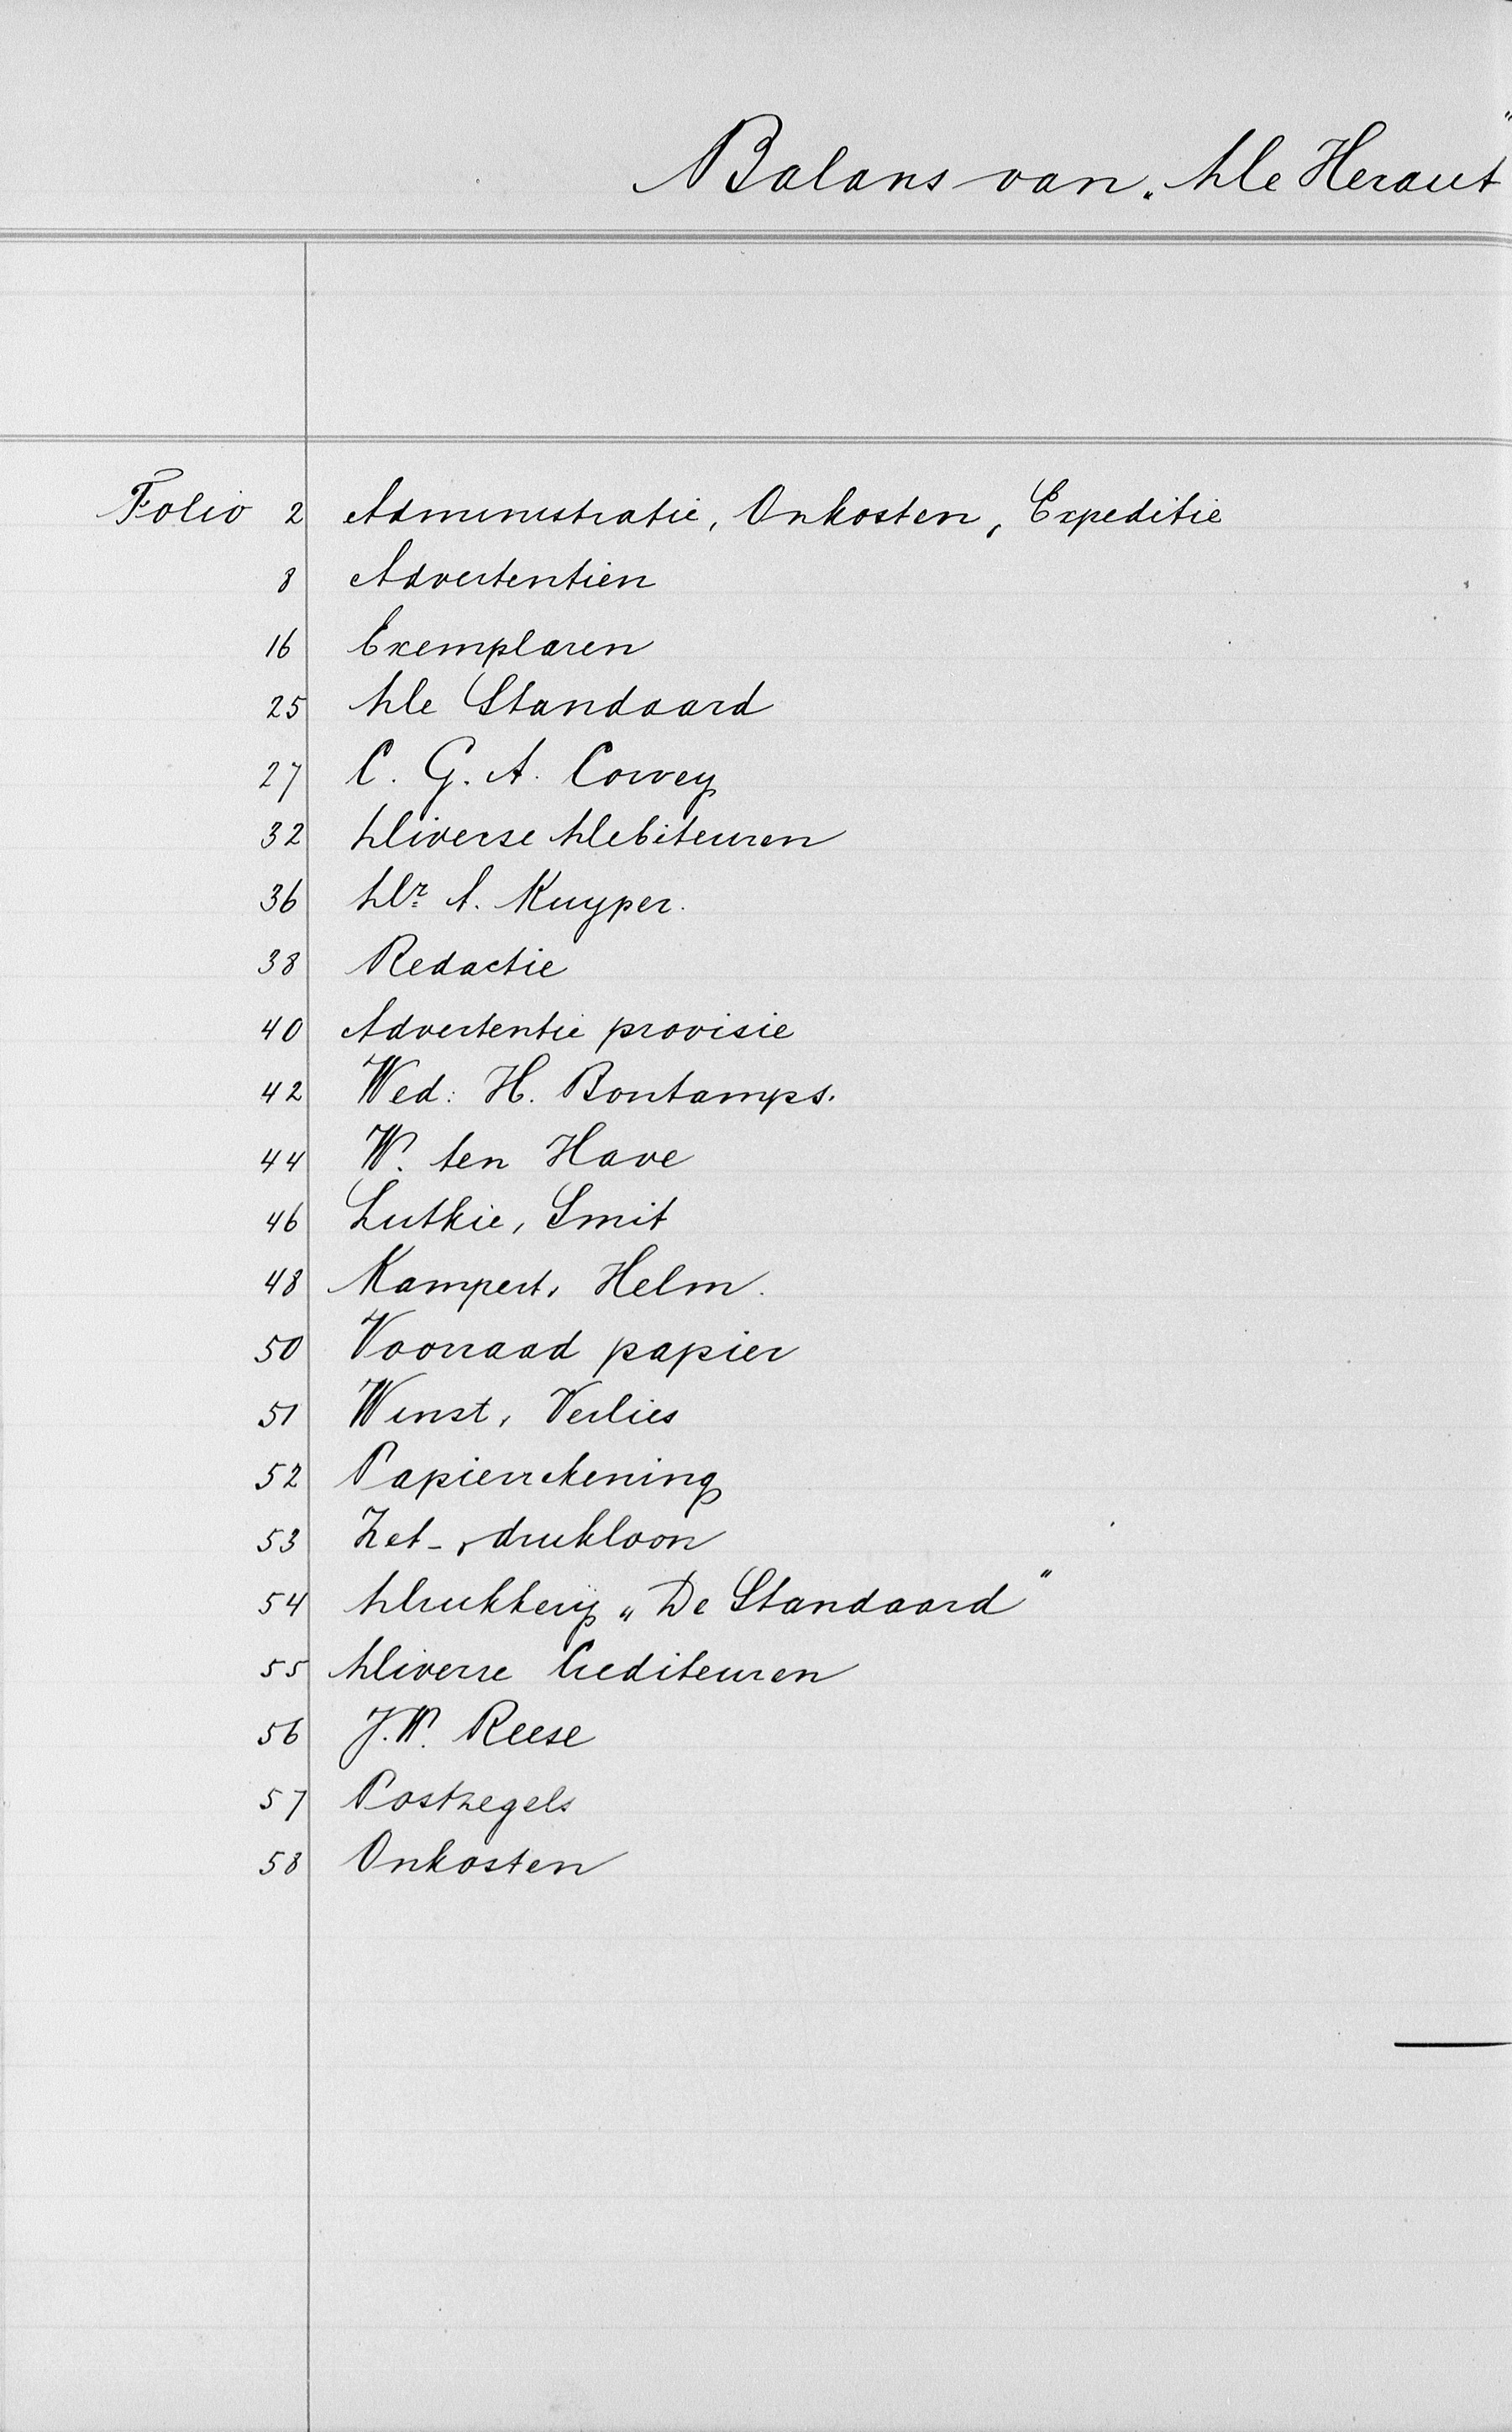 Balans van „De Heraut"
Folio 2 Administratie, Onkosten, Expeditie
8 Advertentiën
16 Exemplaren
25 De Standaard
27 C. G. A. Corvey
32 Diverse Debiteuren
36 Dr. A. Kuyper.
38 Redactie
40 Advertentie provisie
42 Wed: H. Bontamps.
44 W. ten Have
46 Lutkie, Smit
48 Kampert, Helm.
50 Voorraad papier
51 Winst, Verlies
52 Papierrekening
53 Zet-, drukloon
54 Drukkerij „De Standaard"
55 Diverse Crediteuren
56 J. W. Reese
57 Postzegels
58 Onkosten